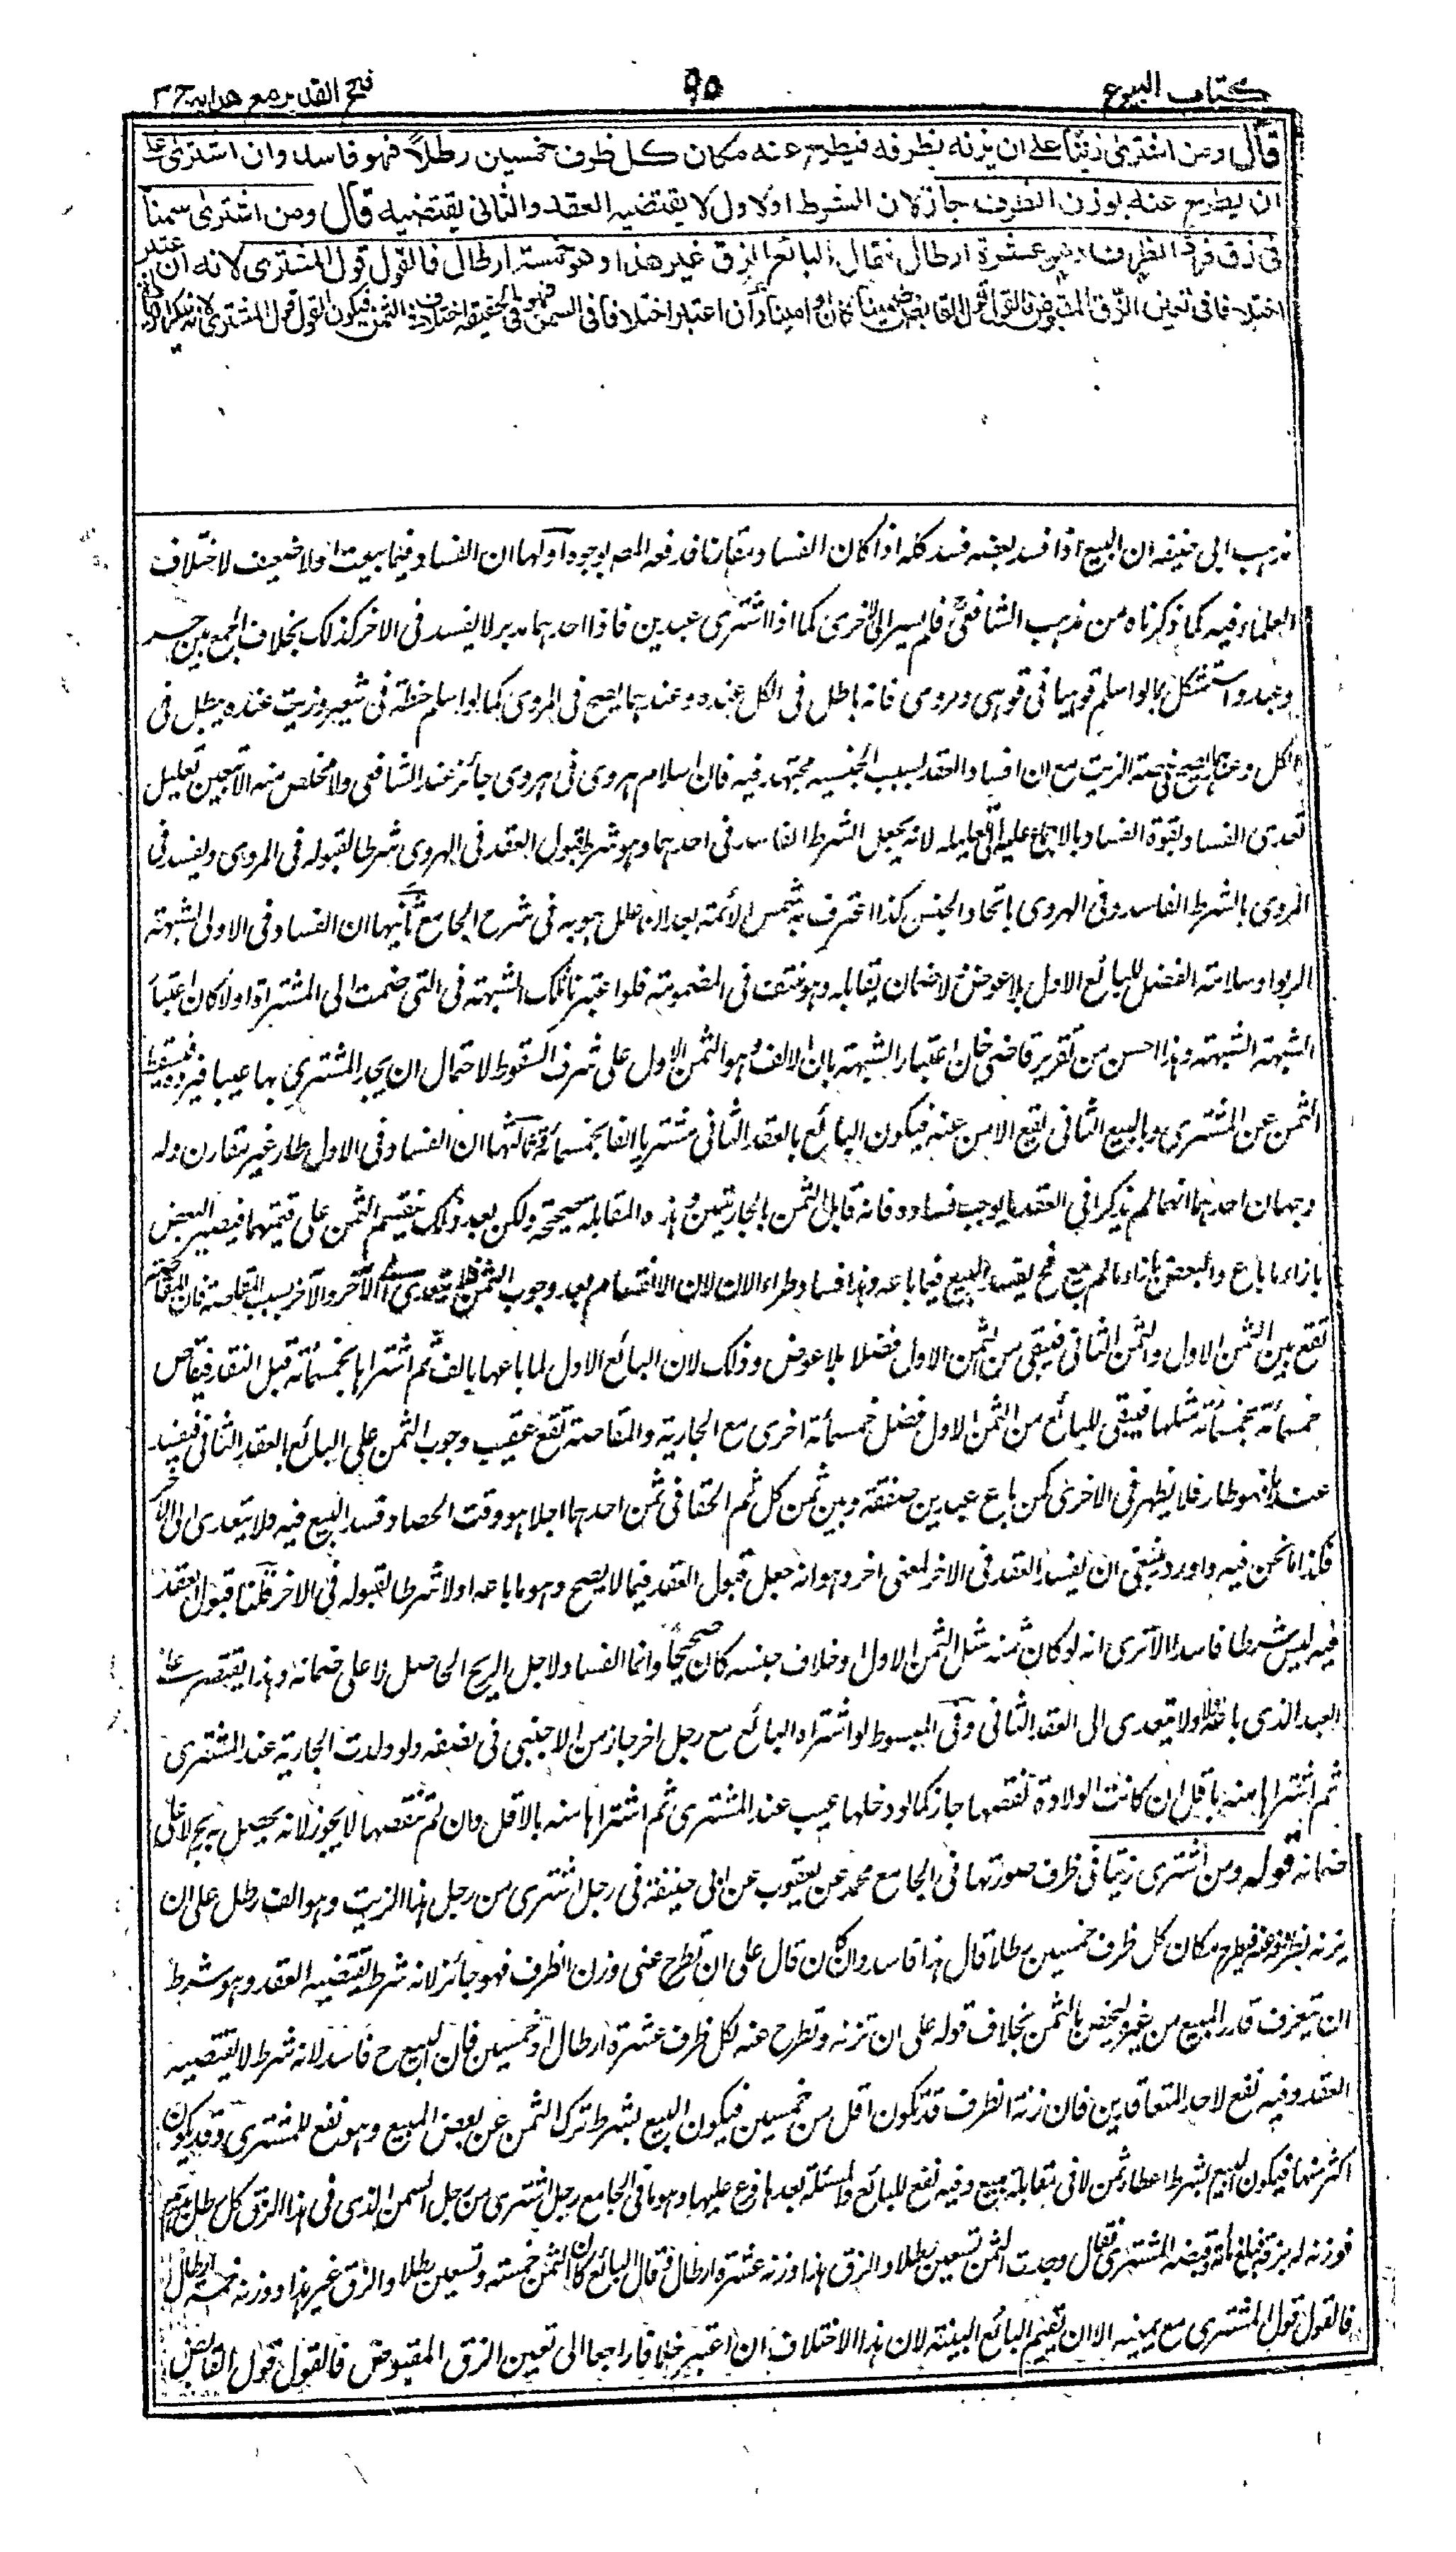 كتاب البيوع
٩٥
فتح القدير مع هدايه ج ٣
قال ومن اشترى زيتا على ان يزنه بظرفه فيطرح عنه مكان كل ظرف خمسين رطلاً فهو فاسد وان اشترى على
ان يطرح عنه بوزن الظرف جاز لان الشرط الاول لا يقتضيه العقد والثانى يقتضيه قال ومن اشترى سمنا
فى زق فرد الظرف وهو عشرة ارطال فقال البائع الزق غير هذا وهو خمسة ارطال فالقول قول المشترى لانه ان اعتبر
اختلافا فى تعيين الزق المقبوض فالقول قول القابض ضمينا كان او امينا وان اعتبر اختلافا فى السمن فهو فى الحقيقة اختلاف فى الثمن فيكون القول قول المشترى لانه ينكر الزيادة
مذهب ابى حنيفه ان البيع اذا فسد بعضه فسد كله اذا كان الفساد مقارنا فدفعه المصـ بوجوه اولها ان الفساد فيما بيعت اولا ضعيف لاختلاف
العلماء فيه كما ذكرناه من مذهب الشافعىؒ فلم يسر الى الاخرى كما اذا اشترى عبدين فاذا احدهما مدبر لا يفسد فى الاخر كذلك بخلاف الجمع بين حر
وعبد واستشكل بما لو اسلم قوهيا فى قوهى ومروى فانه باطل فى الكل عنده وعندهما يصح فى المروى كما لو اسلم حنطة فى شعير وزيت عنده يبطل فى
الكل وعندهما يصح فى حصة الزيت مع ان افساد العقد بسبب الجنسيه مجتهد فيه فان اسلام هروى فى هروى جائز عند الشافعى ولا مخلص منه الا بتعيين تعليل
تعدى الفساد بقوة الفساد بالاجماع عليه لانه يجعل الشرط الفاسد فى احدهما وهو شرط قبول العقد فى الهروى شرطا لقبوله فى المروى ويفسد فى
المروى بالشرط الفاسد وفى الهروى باتحاد الجنس كذا اعترف به شمس الائمة بعد ان علل هو به فى شرح الجامع ثانيها ان الفساد فى الاولى لشبهة
الربوا وسلامة الفضل للبائع الاول بلا عوض لا ضمان يقابله وهو منتف فى المضمومة فلو اعتبرنا تلك الشبهة فى التى ضمت الى المشتراة اولا كان اعتبارا
الشبهة الشبهة وهذا احسن من تقرير قاضى خان اعتبار الشبهة بان الالف وهو الثمن الاول على شرف السقوط لاحتمال ان يجد المشترى بها عيبا فيرده فيسقط
الثمن عن المشترى وبالبيع الثانى يقع الامن عنه فيكون البائع بالعقد الثانى مشتريا الفا بخمسمائة ثالثها ان الفساد فى الاول طار غير مقارن وله
وجهان احدهما انهما لم يذكرا فى العقد ما يوجب فساده فانه قابل الثمن بالجاريتين وهذه المقابلة صحيحة ولكن بعد ذلك ينقسم الثمن على قيمتهما فيصير البعض
بازاء ما باع والبعض بازاء ما لم يبع فح يفسد البيع فيما باعه وهذا فساد طراء الان لان الانقسام بعد وجوب الثمن فلا يتعدى الى الآخر والآخر بسبب المقاصة فان المقاصة
تقع بين الثمن الاول والثمن الثانى فيبقى من الثمن الاول فضلا بلا عوض وذلك لان البائع الاول لما باعها بالف ثم اشتراها بخمسمائة قبل النقد فيقاص
خمسمائة بخمسمائة مثلها فيبقى للبائع من الثمن الاول فضل خمسمائة اخرى مع الجارية والمقاصة تقع عقيب وجوب الثمن على البائع بالعقد الثانى فيفسد
عنده لانه طار فلا يظهر فى الاخرى كمن باع عبدين صفقة وبين ثمن كل ثم الحقا فى ثمن احدهما اجلا هو وقت الحصاد فسد البيع فيه ولا يتعدى الى الآخر
فكذا ما نحن فيه واورد ينبغى ان يفسد العقد فى الاخر لمعنى اخر وهو انه جعل قبول العقد فيما لا يصح وهو ما باعه اولا شرطا لقبوله فى الاخر قلنا قبول العقد
فيه ليس شرطا فاسدا الا ترى انه لو كان ثمنه مثل الثمن الاول او خلاف جنسه كان صحيحا وانما الفساد لاجل الربح الحاصل لا على ضمانه وهذا يقتصر على
العبد الذى باعه اولا ولا يتعدى الى العقد الثانى وفى المبسوط لو اشتراه البائع مع رجل اخر جاز من الاجنبى فى نصفه ولو ولدت الجارية عند المشترى
ثم اشتراها منه باقل ان كانت الولادة نقصها جاز كما لو دخلها عيب عند المشترى ثم اشتراها منه بالاقل وان لم تنقصها لا يجوز لانه يحصل به ربح لا على
ضمانه قوله ومن اشترى زيتا فى ظرف صورتها فى الجامع محمد عن يعقوب عن ابى حنيفة فى رجل اشترى من رجل هذا الزيت وهو الف رطل على ان
يزنه بظروفه فيطرح مكان كل ظرف خمسين رطلا قال هذا فاسد وان كان قال على ان تطرح عنى وزن الظرف فهو جائز لانه شرط يقتضيه العقد وهو شرط
ان يتعرف قدر المبيع من غيره ليخص بالثمن بخلاف قوله على ان تزنه وتطرح عنه لكل ظرف عشرة ارطال او خمسين فان البيع ح فاسد لانه شرط لا يقتضيه
العقد وفيه نفع لاحد المتعاقدين فان زنة الظرف قد تكون اقل من خمسين فيكون البيع بشرط ترك الثمن عن بعض المبيع وهو نفع للمشترى وقد يكون
اكثر منها فيكون البيع بشرط اعطاء ثمن لا فى مقابلة مبيع وفيه نفع للبائع والمسئلة بعدها فرع عليها وهو ما فى الجامع رجل اشترى من رجل السمن الذى فى هذا الزق كل رطل بدرهم
فوزنه له بزقه فبلغ مائة وقبضه المشترى فقال وجدت السمن تسعين رطلا والزق هذا وزنه عشرة ارطال فقال البائع كان السمن خمسة وتسعين رطلا والزق غير هذا ووزنه خمسة ارطال
فالقول قول المشترى مع يمينه الا ان تقيم البائع البينة لان هذا الاختلاف ان اعتبر خلافا راجعا الى تعيين الزق المقبوض فالقول قول القابض